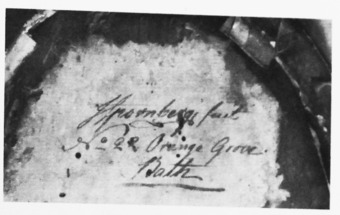 Spornberg, fecit
No 22 Orange Grove
Bath